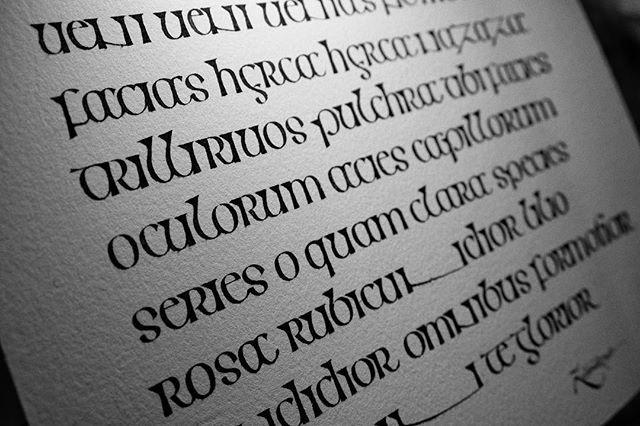 ueni ueni uenias
facias hyrca hyrca nazaza
trillirivos pulchra tibi facies
oculorum acies capillorum
series o quam clara species
rosa rubicundior lilio
ndidior omnibus formosior
in te glorior